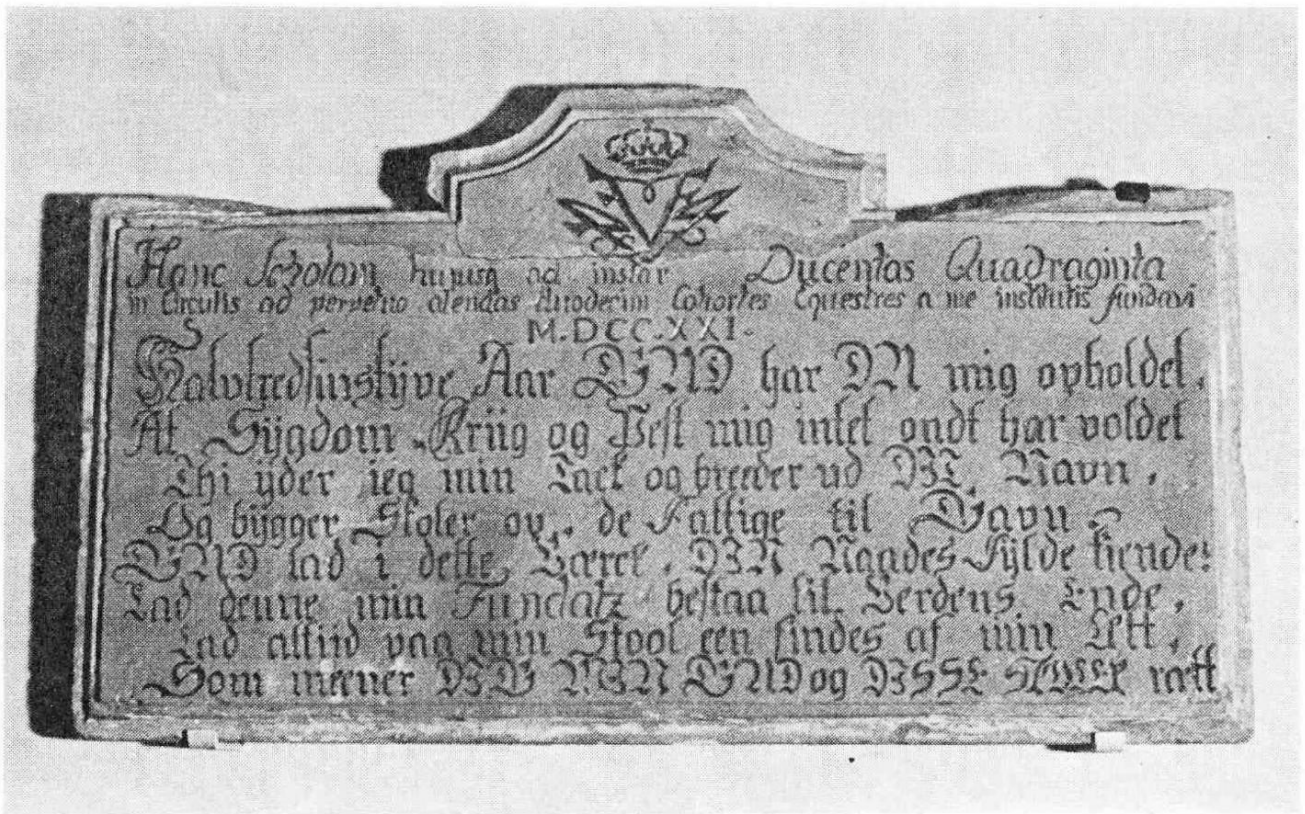 Hanc Scholam hujusq ad instar Ducentas Quadraginta
in Circulis ad perpetuo alendas duodecim Cohortes Equestres a me institutis fundavi
M.DCC.XXI.
Halvtredsinstÿve Aar GUD har DU mig opholdet,
At Sÿgdom Kriig og Pest mig intet ondt har voldet
Thi ÿder ieg min Tack og breeder ud DIT Navn,
Og bÿgger Skoler op, de Fattige til Gavn.
GUD lad i dette Værck, DIN Naades Fÿlde kiende
Lad denne min Fundatz bestaa til Verdens Ende,
Lad altiid paa min Stool een findes af min Ætt,
Som meener DIG MIN GUD og DISSE SKOLER rætt